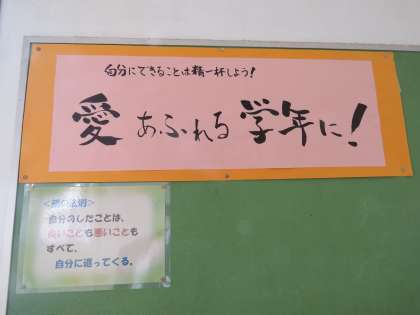 自分にできることは精一杯しよう！
愛あふれる学年に！
自分のしたことは、
良いことも悪いことも
すべて、
自分に返ってくる。